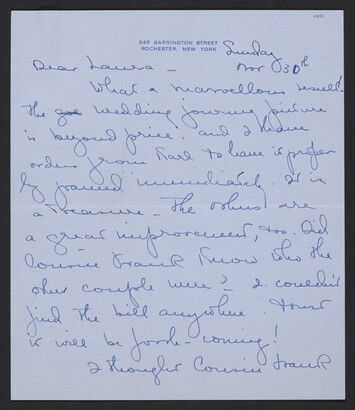 245 BARRINGTON STREET
ROCHESTER, NEW YORK
Sunday
Nov 30th
Dear Laura –
What a marvellous result –
the wedding journey picture
is beyond price! and I have
orders from Karl to have it proper
ly framed immediately. It is
a treasure – The others are
a great improvement, too. Did
Cousin Frank know who the
other couple were? I couldn't
find the bill anywhere. Trust
it will be forth-coming!
I thought Cousin Frank